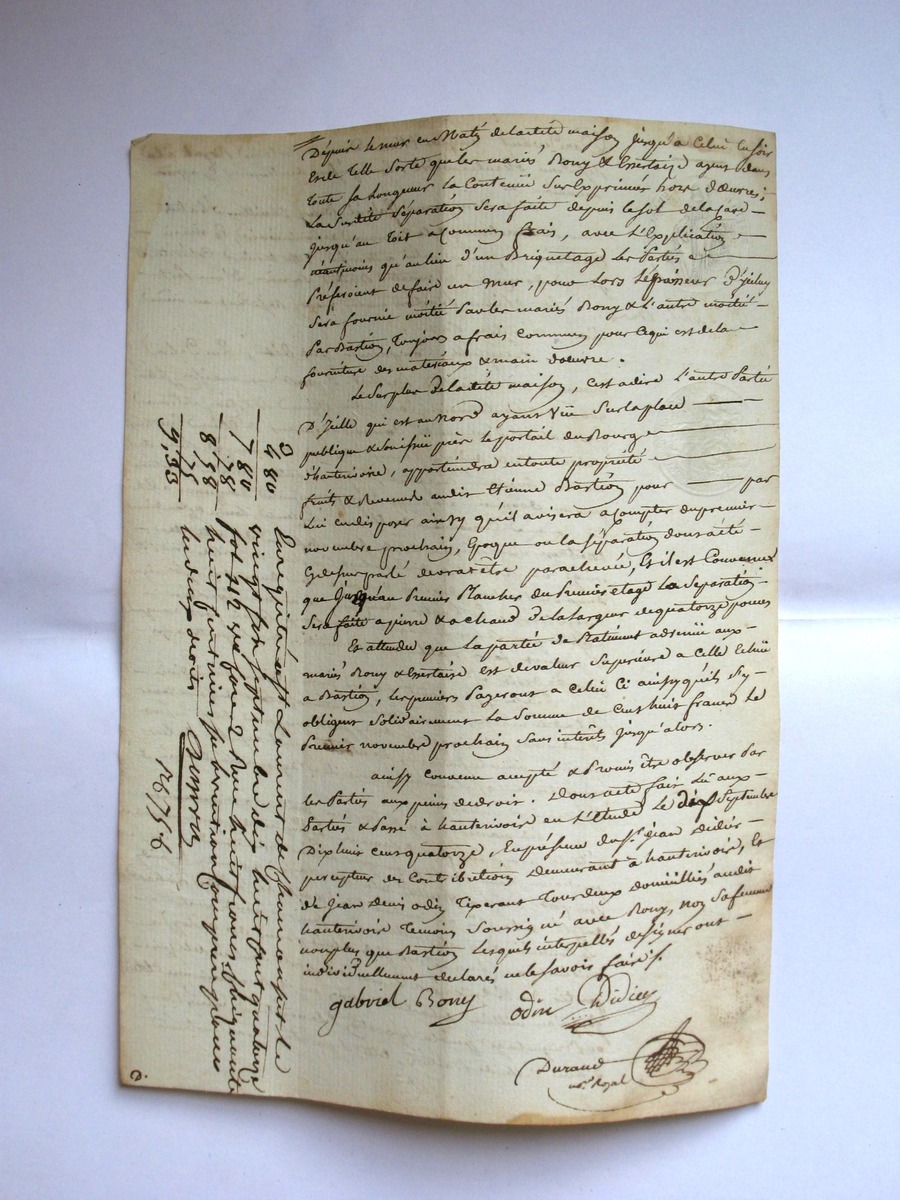 Dépuis le mur en Matin de ladite maison jusqu'a Celui en soir
Et de telle Sorte que les mariés Bony & Essertaize ayent dans
toute sa Longueur la Contenüe Sus Exprimée hors d'œuvres;
La Susdite Séparation Sera faite depuis le sol de la cave
jusqu'au toit a Communs frais, avec L'Explication
néantmoins qu'au lieu d'un Briquetage les Parties
Préferoient de faire un mur, pour Lors L'épaisseur D'ycelui
Sera fournie moitié Par les mariés Bony & L'autre moitié
Par Bastion, Toujours a frais Communs pour Ce qui est de la
fourniture des materiaux & main d'œuvre.
Le Surplus De ladite maison, C'est a dire L'autre Partie
D'Ycelle qui est au Nord ayant Vüe Sur la place
publique & Son issüe près le portail du Bourg
d'hauterivoire, appartiendra en toute propriété
fruits & Revenus audit Etienne Bastion pour par
Lui en disposer ainsy qu'il avisera a Compter du premier
novembre prochain, Epoque ou la Séparation dont a été
Cy dessus parlé devra etre parachevée, Et il est Convenu
que Jusqu'au Premier Plancher du Premier etage La Separation
Sera faite a pierre & a chaud De la Largeur de quatorze pouces
Et attendu que la partie de Batiment advenüe aux
mariés Bony & Essertaize est de valeur Superieure a Celle Echüe
a Bastion, les premiers Payeront a Celui Ci ainsy qu'ils S'y
obligent Solidairement La Somme de Cent huit francs Le
Premier novembre prochain Sans intérêts jusqu'alors.
ainsy Convenu accepté & Promis être observer Par
les Parties aux peines de droit. Dont acte fait Lû aux
Parties & Passé à hauterivoire en L'étude Le dix Septembre
Dix huit Cent quatorze, En présence du Sr. jean Didier
percepteur des Contributions Demeurant à hauterivoire, Et
de Jean Denis odin Tixerant Tous deux Domiciliés audit
hauterivoire Temoins Soussignés avec Bony, non Sa femme
non plus que Bastion Lesquels interpellés de Signer ont
individuellement déclarés ne le Savoir faire.
gabriel Bony
odin
Didier
Durand
nre. Royal
Enregistré à St Laurent de Chamousset le
vingt Sept Septembre dix huit cent quatorze
fol.
huit francs
huit centimes
les deux droits
480
780
78
858
75
9,33
D.